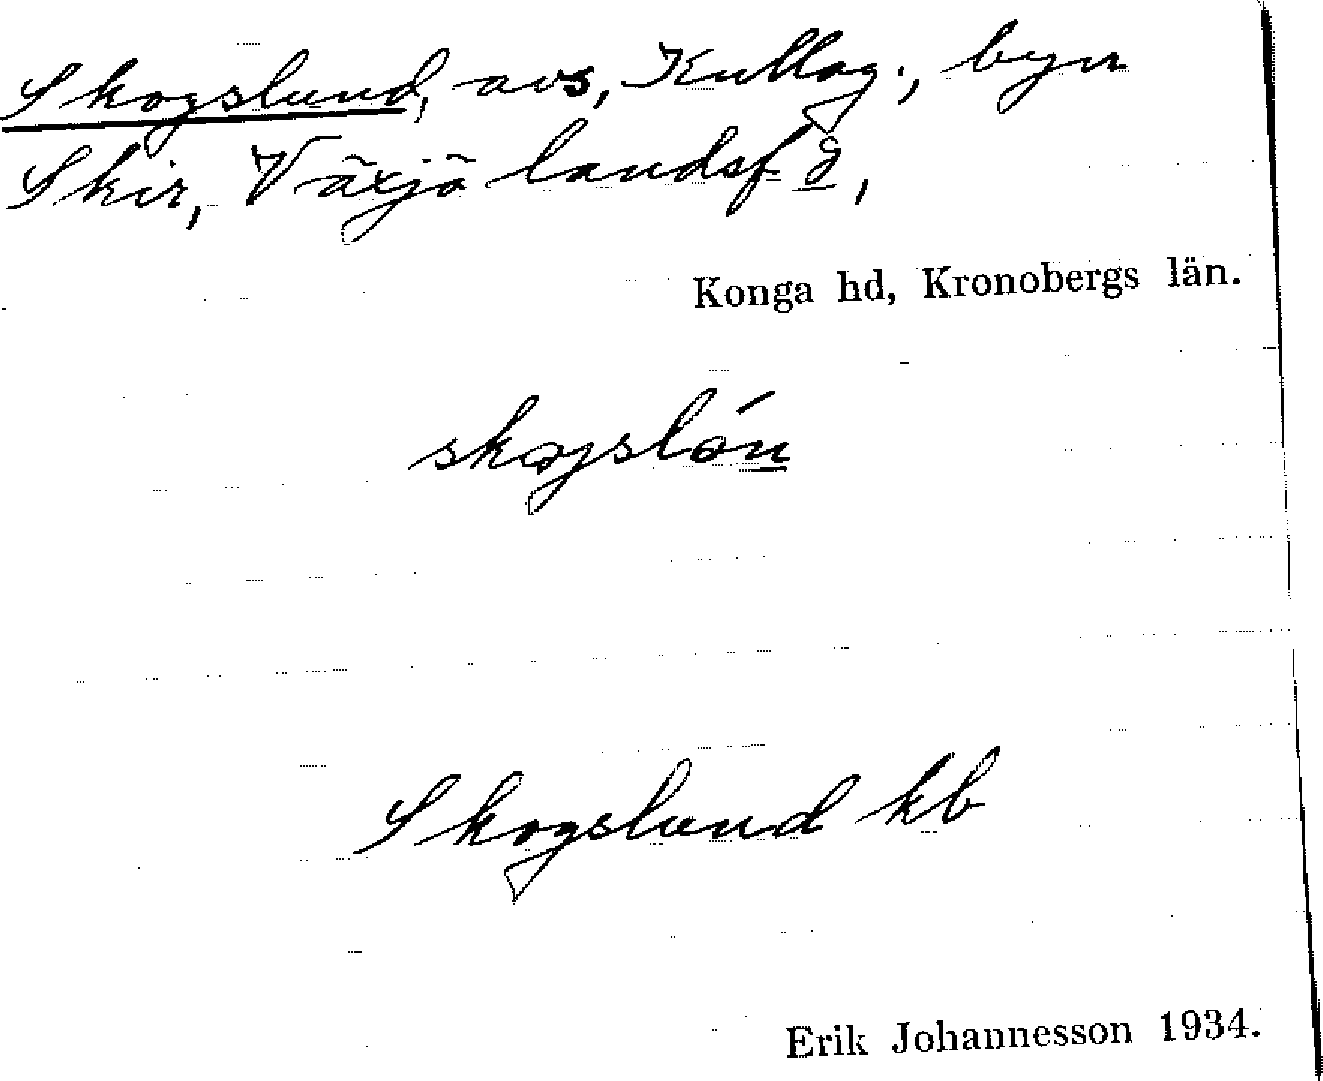 Skogslund, avs, Kullag., byn
Skir, Växjö landsf d,
Konga hd, Kronobergs län.
skogslón
Skogslund kb
Erik Johannesson 1934.